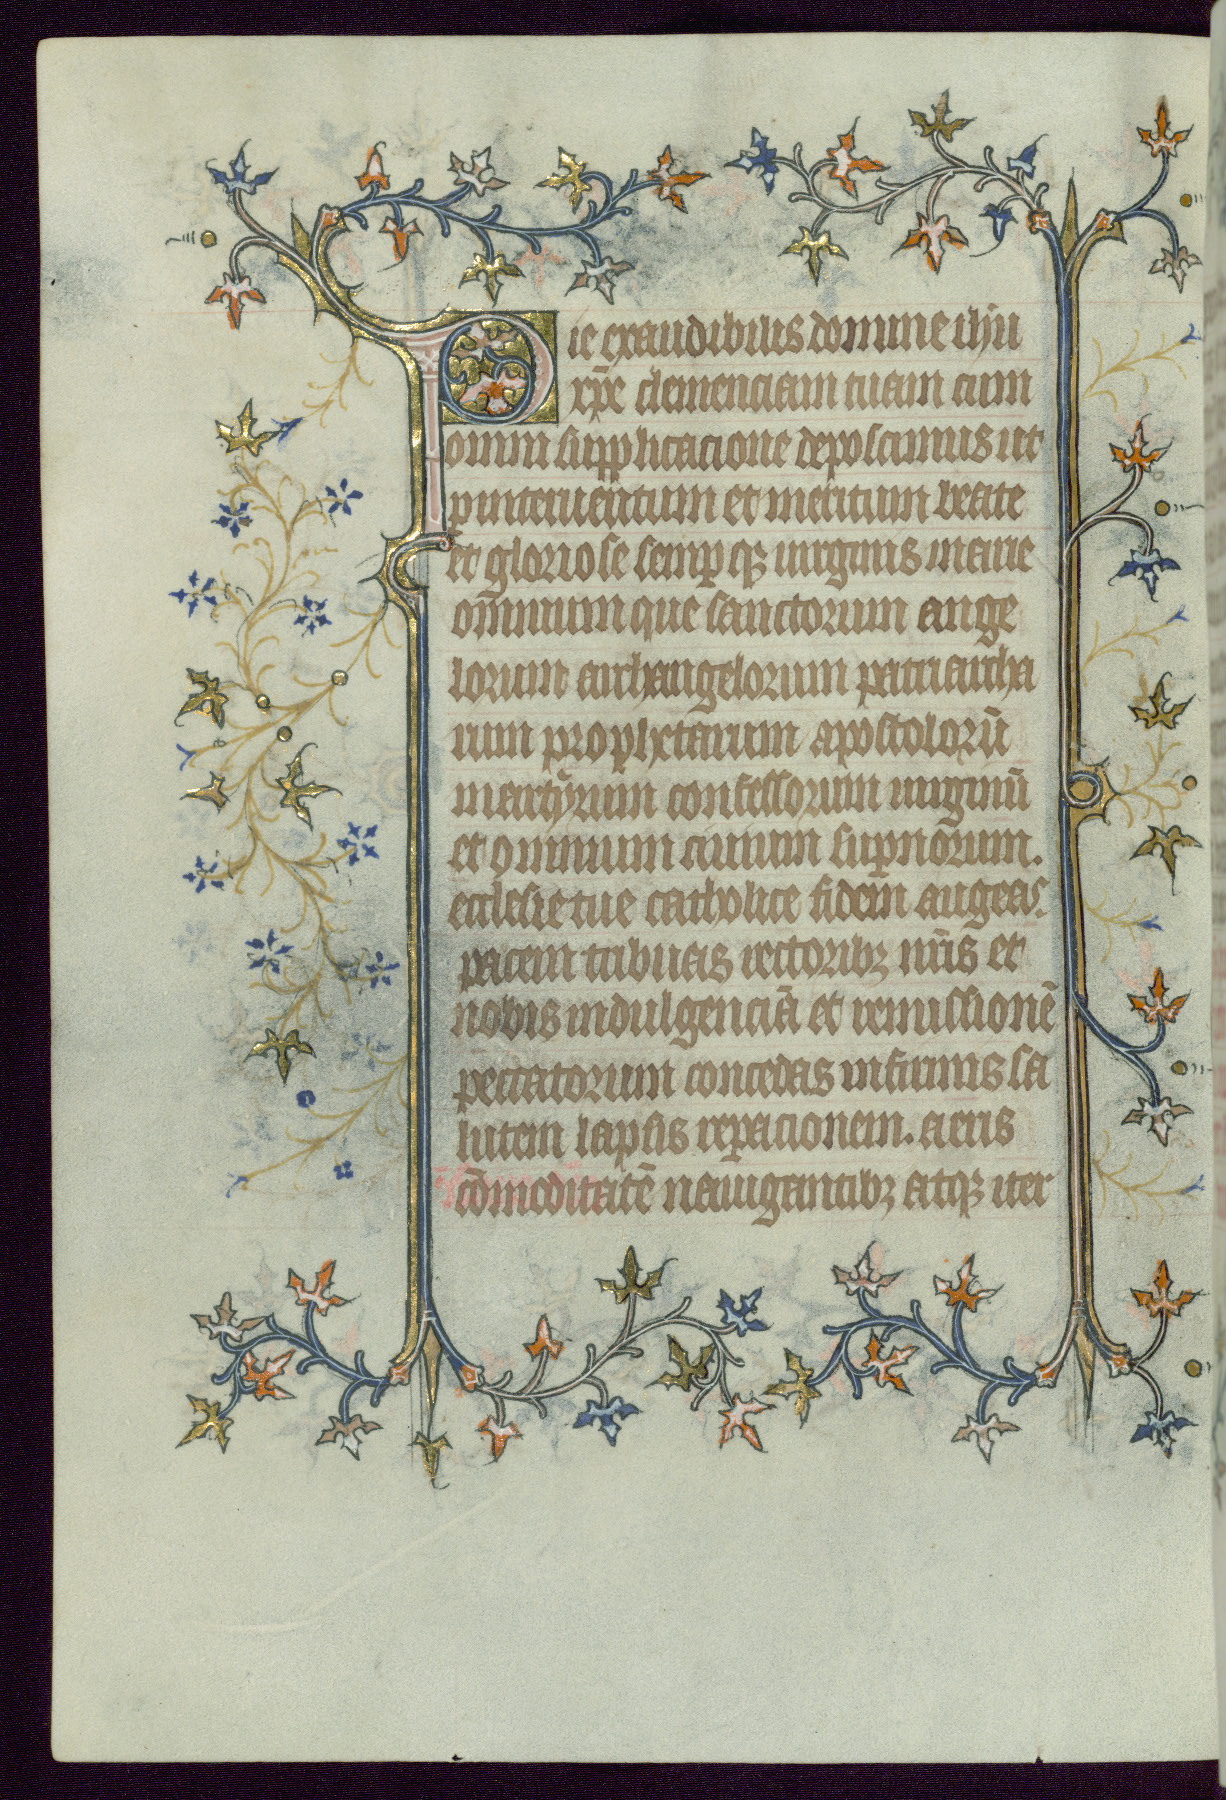 Pie exaudibilis domine ihu
xpe clemenciam tuam cum
omni supplicacione deposcimus ut
p interuentum et meritum beate
et gloriose semp q; uirginis marie
omnium que sanctorum ange
lorum archangelorum patriarcha
rum prophetarum apostolorū
martyrum confessorum uirginū
et omnium ciuium supnorum.
ecclesie tue catholice fidem augeas.
pacem tribuas rectorib; nris et
nobis indulgenciā et remissionē
peccatorum concedas infirmis sa
lutem lapsis repacionem. aeris
cōmoditatē nauigantib; atq; iter